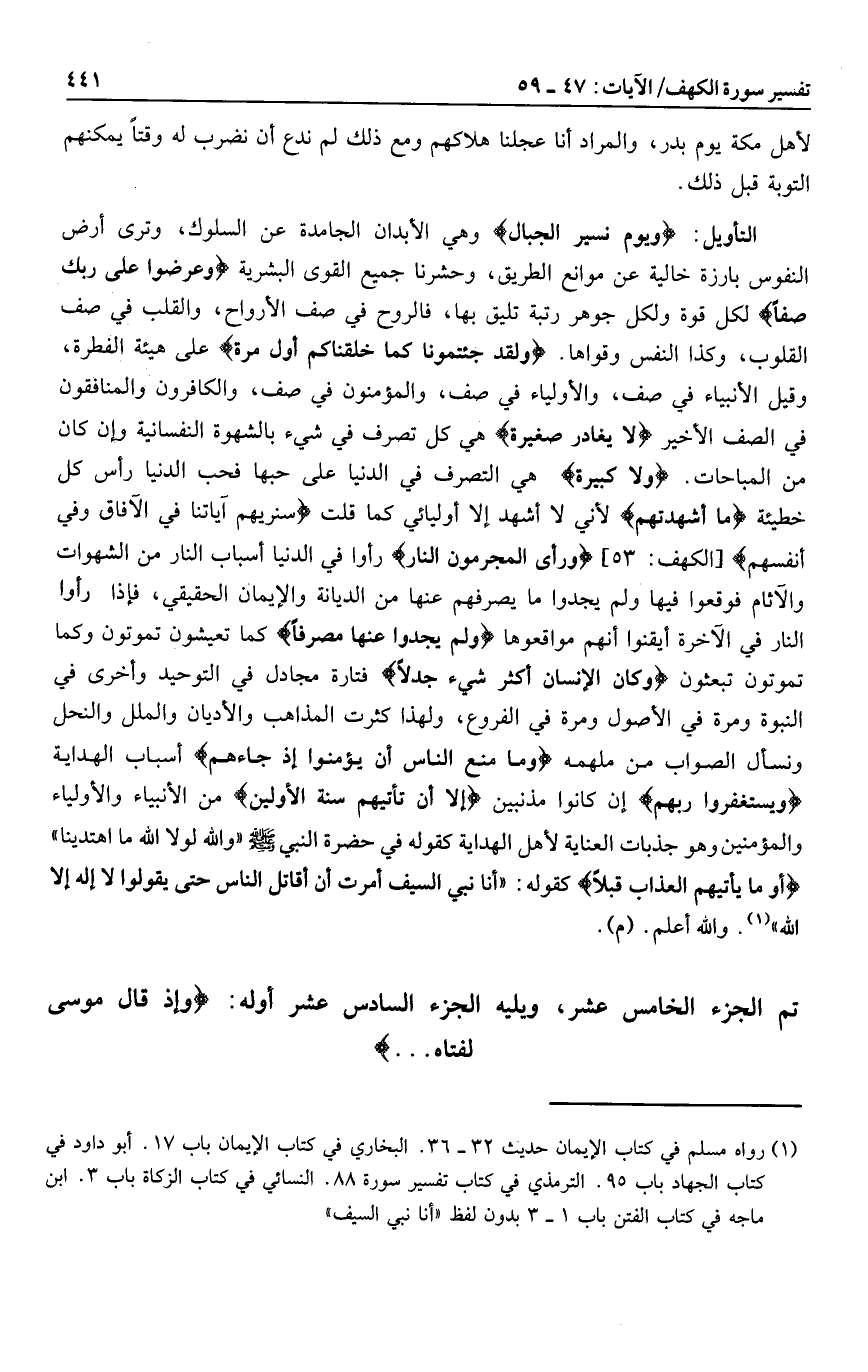 تفسير سورة الكهف/ الآيات: ٤٧ ـ ٥٩ ٤٤١
لأهل مكة يوم بدر، والمراد أنا عجلنا هلاكهم ومع ذلك لم ندع أن نضرب له وقتاً يمكنهم
التوبة قبل ذلك.
التأويل: ﴿ويوم نسير الجبال﴾ وهي الأبدان الجامدة عن السلوك، وترى أرض
النفوس بارزة خالية عن موانع الطريق، وحشرنا جميع القوى البشرية ﴿وعرضوا على ربك
صفاً﴾ لكل قوة ولكل جوهر رتبة تليق بها، فالروح في صف الأرواح، والقلب في صف
القلوب، وكذا النفس وقواها. ﴿ولقد جئتمونا كما خلقناكم أول مرة﴾ على هيئة الفطرة،
وقيل الأنبياء في صف، والأولياء في صف، والمؤمنون في صف، والكافرون والمنافقون
في الصف الأخير ﴿لا يغادر صغيرة﴾ هي كل تصرف في شيء بالشهوة النفسانية وإن كان
من المباحات. ﴿ولا كبيرة﴾ هي التصرف في الدنيا على حبها فحب الدنيا رأس كل
خطيئة ﴿ما أشهدتهم﴾ لأني لا أشهد إلا أوليائي كما قلت ﴿سنريهم آياتنا في الآفاق وفي
أنفسهم﴾ [الكهف: ٥٣] ﴿ورأى المجرمون النار﴾ رأوا في الدنيا أسباب النار من الشهوات
والآثام فوقعوا فيها ولم يجدوا ما يصرفهم عنها من الديانة والإيمان الحقيقي، فإذا رأوا
النار في الآخرة أيقنوا أنهم مواقعوها ﴿ولم يجدوا عنها مصرفاً﴾ كما تعيشون تموتون وكما
تموتون تبعثون ﴿وكان الإنسان أكثر شيء جدلاً﴾ فتارة مجادل في التوحيد وأخرى في
النبوة ومرة في الأصول ومرة في الفروع، ولهذا كثرت المذاهب والأديان والملل والنحل
ونسأل الصواب من ملهمه ﴿وما منع الناس أن يؤمنوا إذ جاءهم﴾ أسباب الهداية
﴿ويستغفروا ربهم﴾ إن كانوا مذنبين ﴿إلا أن تأتيهم سنة الأولين﴾ من الأنبياء والأولياء
والمؤمنين وهو جذبات العناية لأهل الهداية كقوله في حضرة النبي ﷺ «والله لولا الله ما اهتدينا»
﴿أو ما يأتيهم العذاب قبلاً﴾ كقوله: «أنا نبي السيف أمرت أن أقاتل الناس حتى يقولوا لا إله إلا
الله»(١). والله أعلم. (م).
تم الجزء الخامس عشر، ويليه الجزء السادس عشر أوله: ﴿وإذ قال موسى
لفتاه...﴾
(١) رواه مسلم في كتاب الإيمان حديث ٣٢ ـ ٣٦. البخاري في كتاب الإيمان باب ١٧. أبو داود في
كتاب الجهاد باب ٩٥. الترمذي في كتاب تفسير سورة ٨٨. النسائي في كتاب الزكاة باب ٣. ابن
ماجه في كتاب الفتن باب ١ ـ ٣ بدون لفظ «أنا نبي السيف»